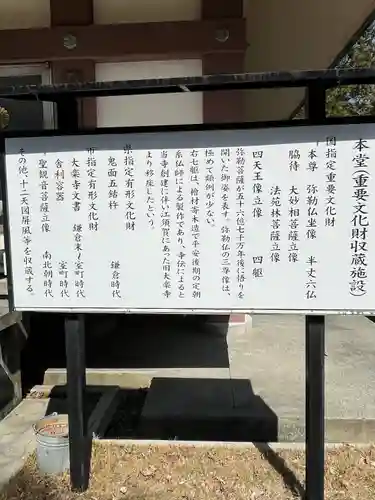 本堂（重要文化財収蔵施設）
国指定重要文化財
本尊 弥勒仏坐像 半丈六仏
脇待 大妙相菩薩立像
法苑林菩薩立像
四天王像立像 四躯
弥勒菩薩が五十六七千万年後に悟りを
開いた御姿を表す。弥勒仏の三尊像は、
極めて類例が少ない。
右七躯は、檜材寄木造で平安後期の定朝
系仏師による製作であり、寺伝によると
当寺創建に伴い江須賀にあった旧大楽寺
より移座したという。
県指定有形文化財
鬼面五鈷杵 鎌倉時代
市指定有形文化財
大楽寺文書 鎌倉末〜室町時代
舎利容器 室町時代
聖観音菩薩立像 南北朝時代
その他、十二天図屏風等を収蔵する。